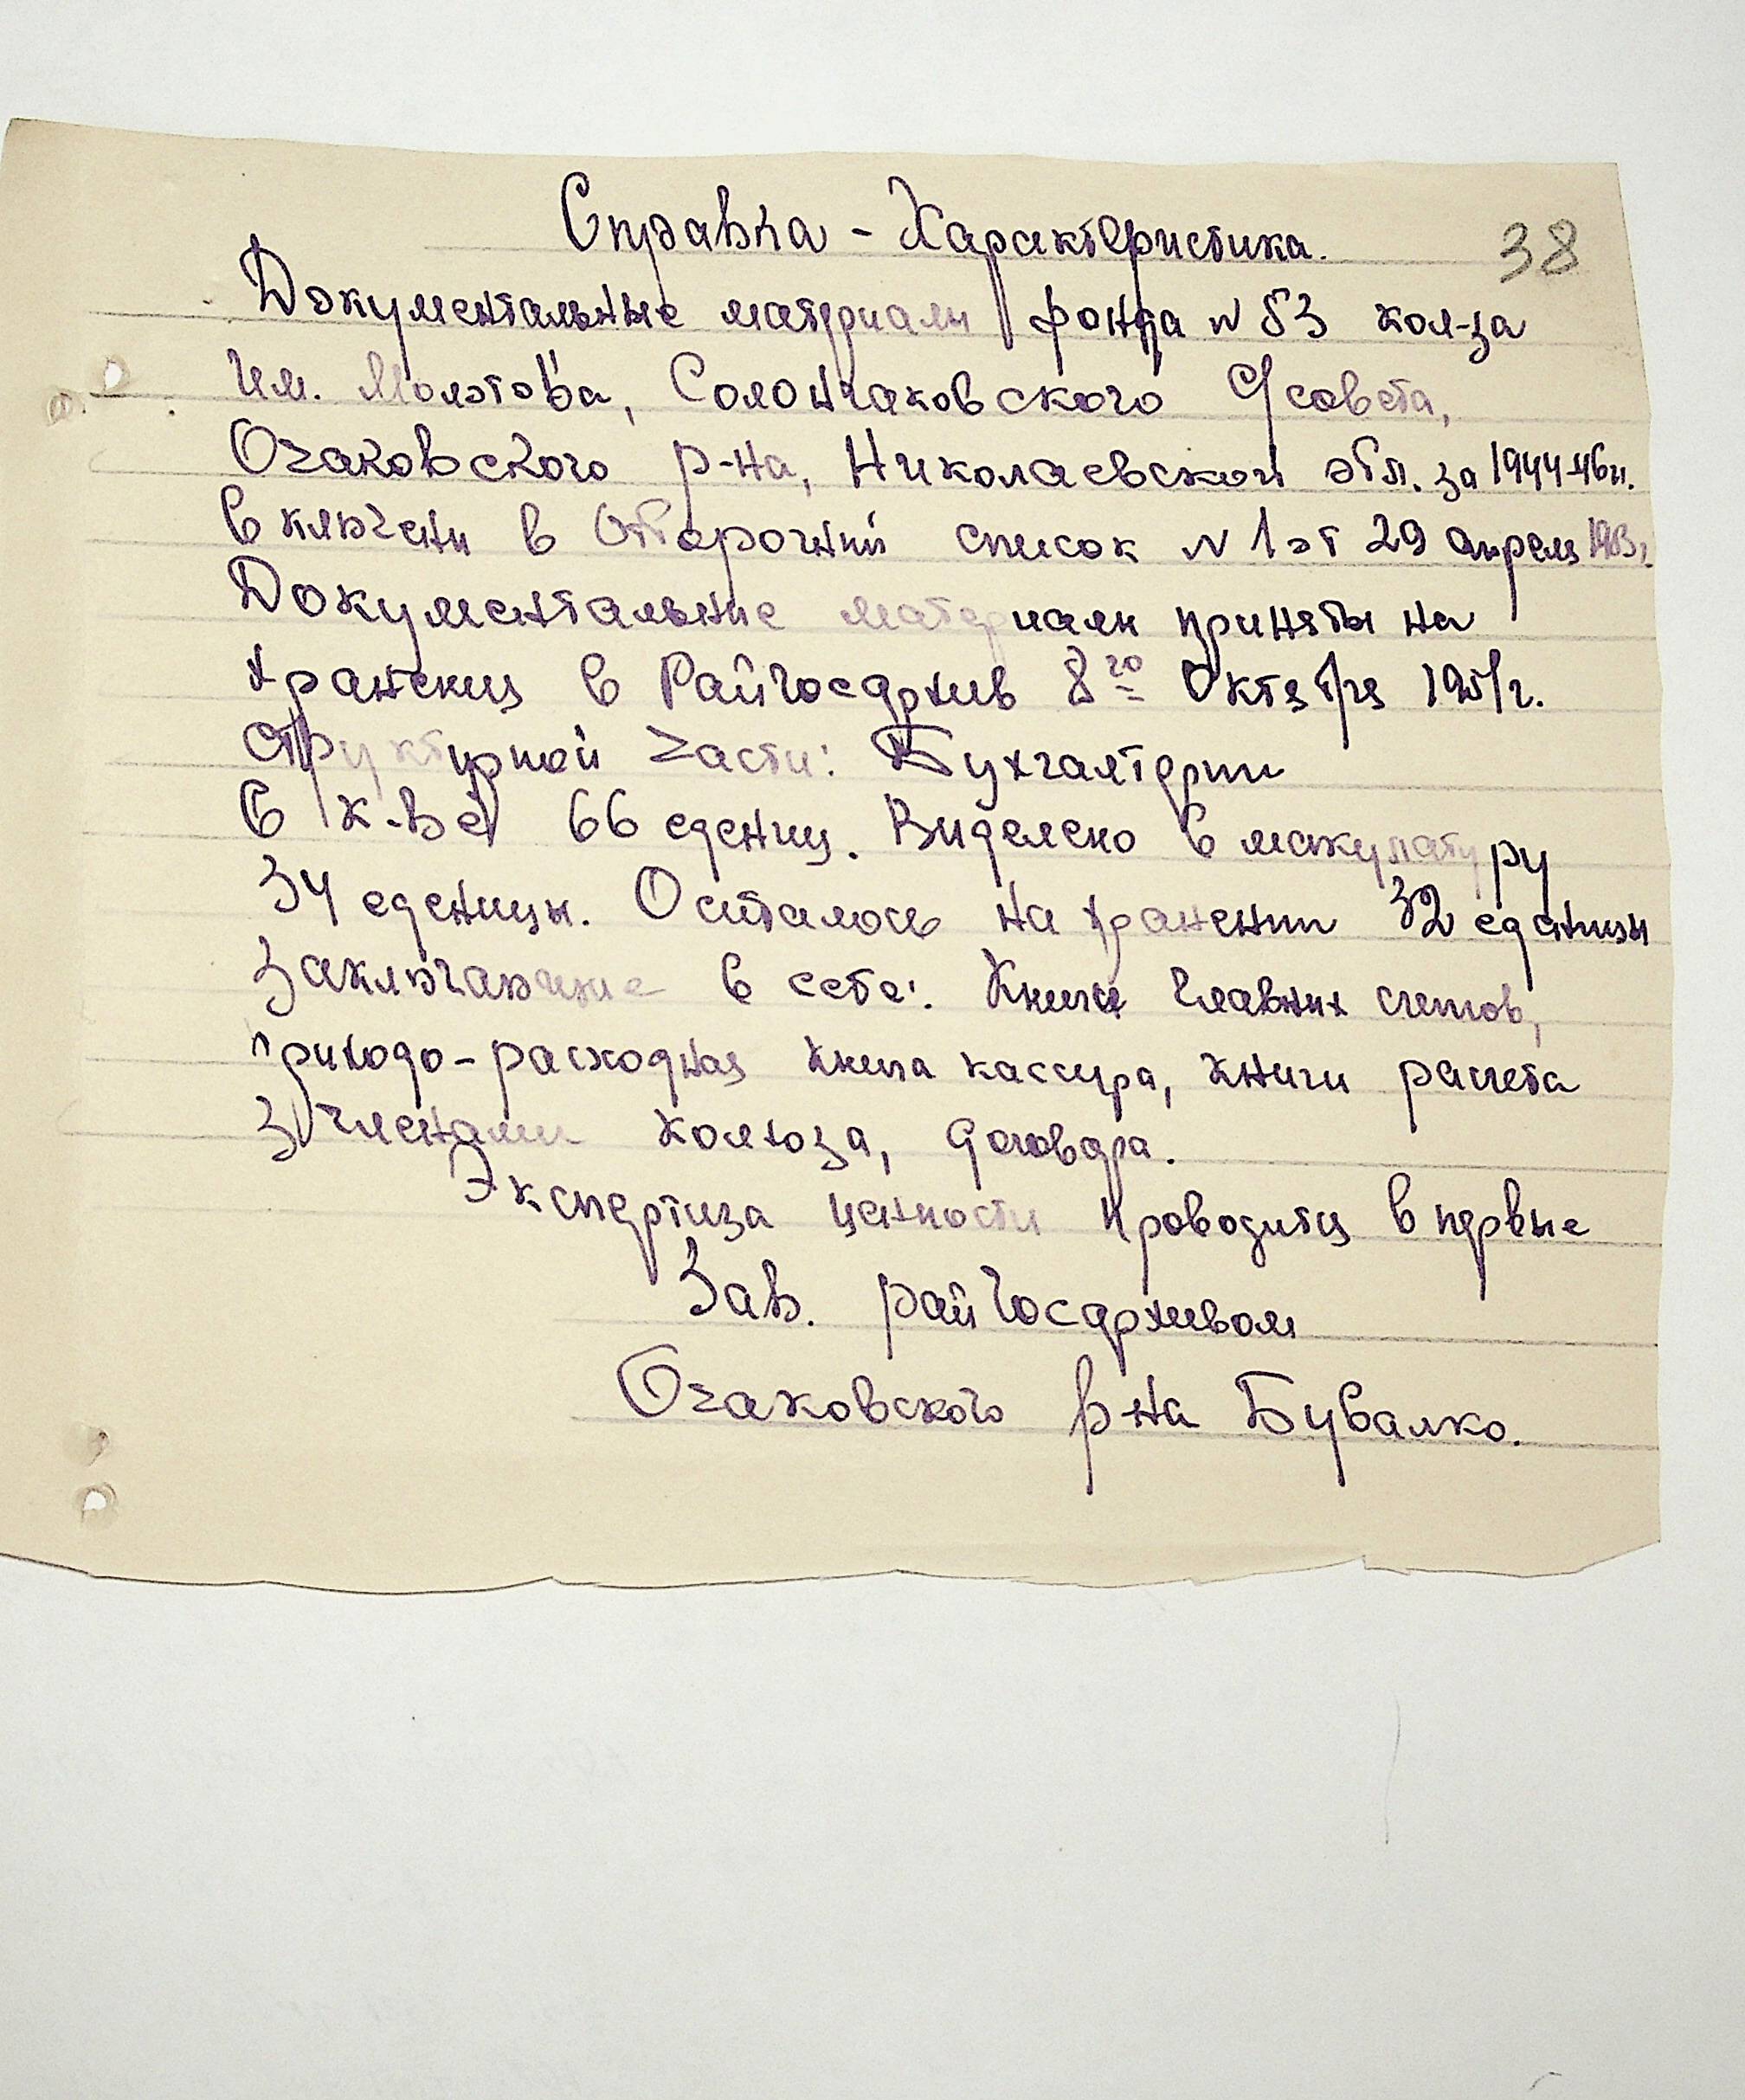 Справка - Характеристика.
38
Документальные материали фонда № 53 кол-за
им. Молотова, Солончаковского с/совета,
Очаковского р-на, Николаевской обл. за 1944-46гг.
Включени в Отборочний список № 1 от 29 апреля
Документальние материали приняты на
хранения в Райгосархив 8го Октября 1951г.
Структурной части: Бухгалтерии
В к-ве 66 едениц. Виделено в макулатуру
34 еденицы. Осталось на хранении 32 еденицы
Заключающие в себе: Книги главних счетов,
приходо-расходная книга кассира, книги расчета
з членами колхоза, договора.
Экспертиза ценности проводится впервые
Зав. райгосархивом
Очаковского р-на Бувалко.